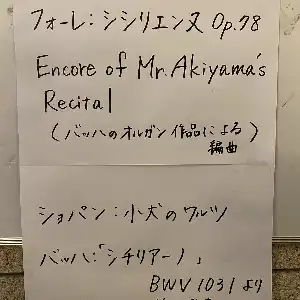 フォーレ:シシリエンヌ Op.78
Encore of Mr. Akiyama's
Recital
(バッハのオルガン作品による)
編曲
ショパン:小犬のワルツ
バッハ:「シチリアーノ」
BWV 1031 より